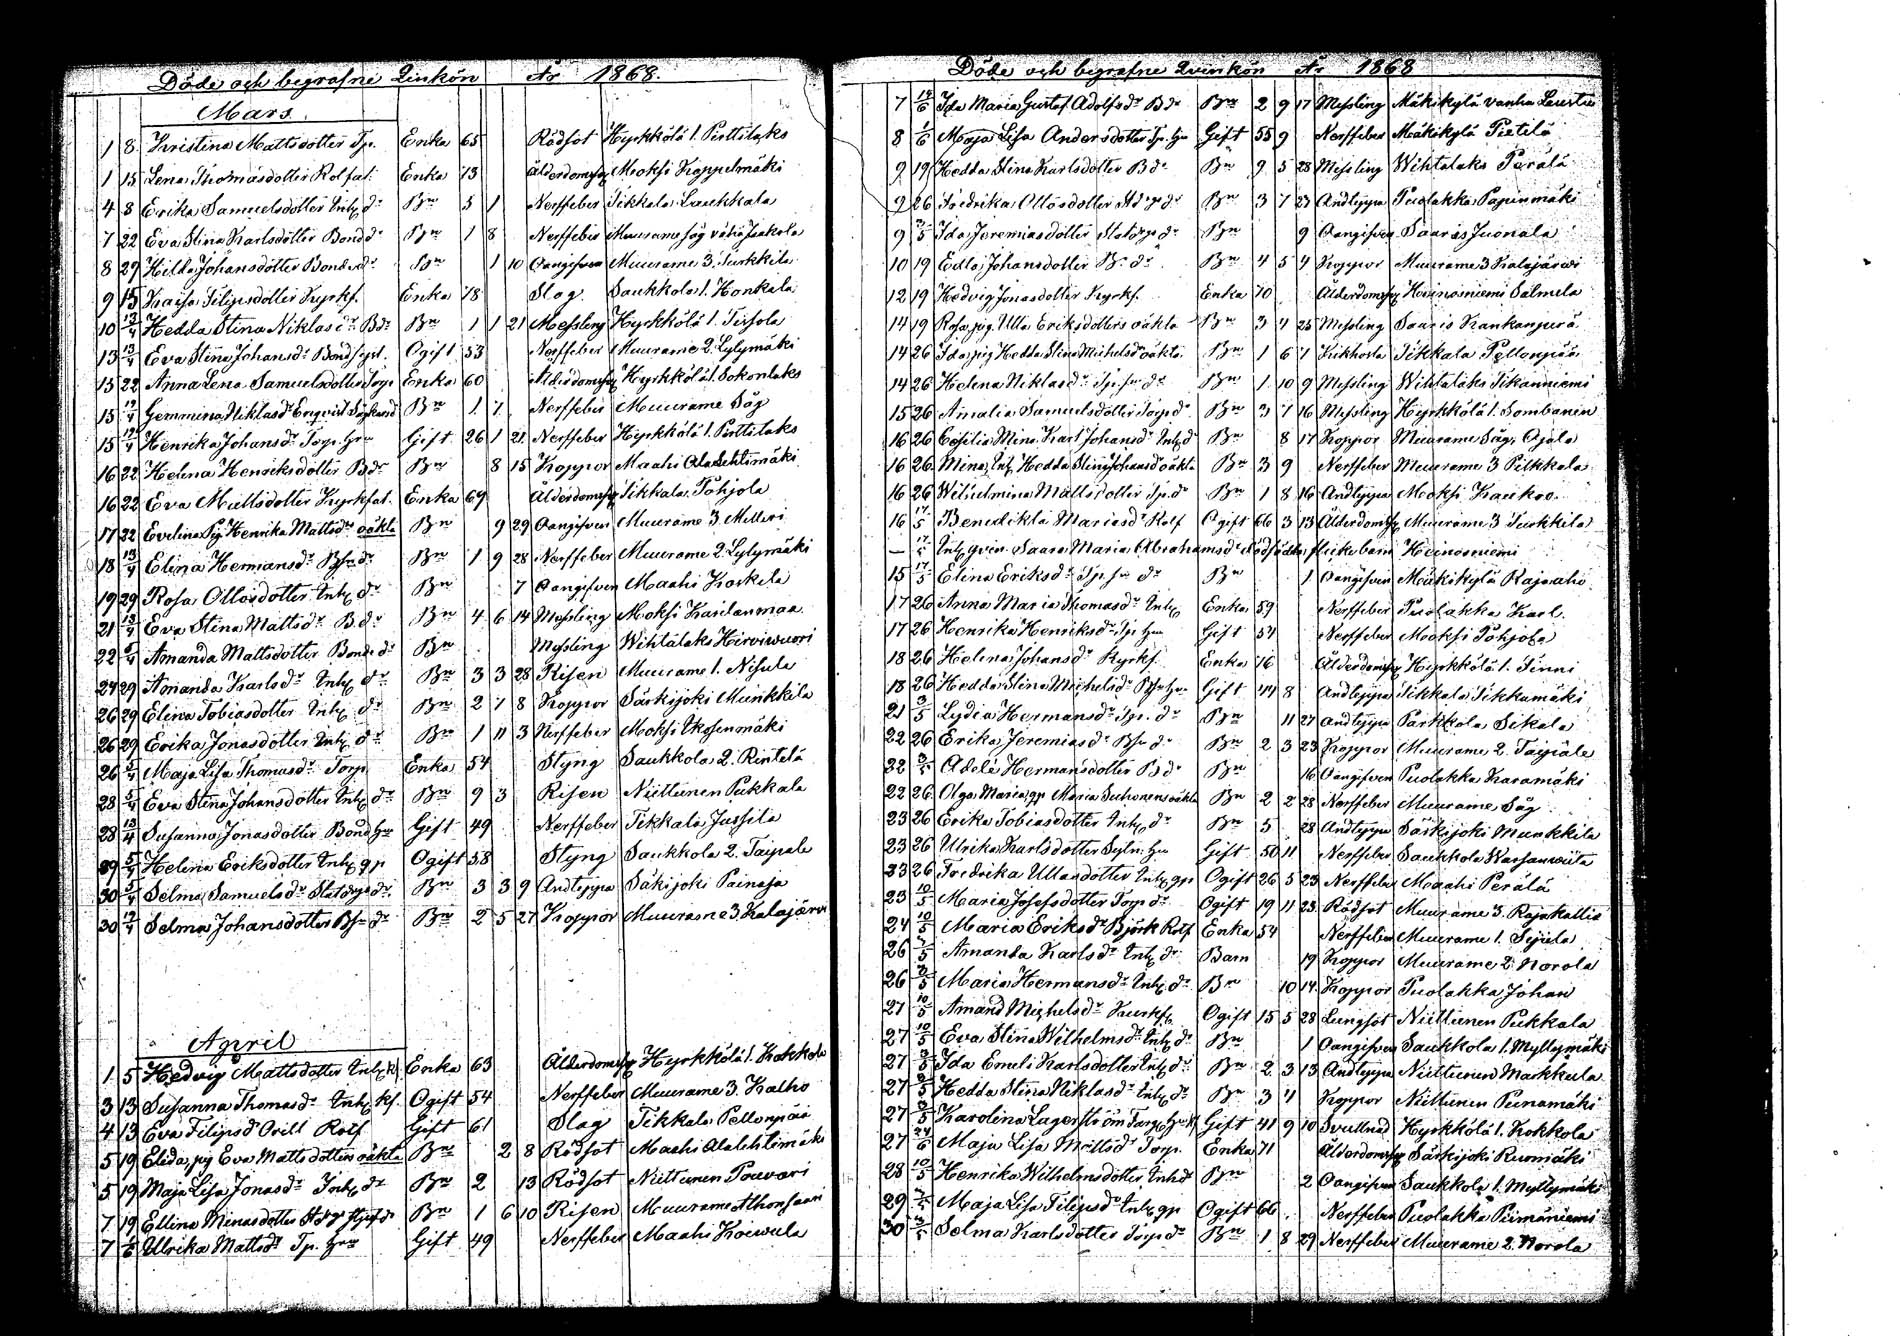 Döde och begrafne Qvinkön År 1868.
Mars.
1 8 Kristina Mattsdotter Tp. Enka 65 Rödsot Hyrkkölä 1. Perttilaks
1 15 Lena Thomasdotter Rotfat. Enka 73 Ålderdomssv Moksi Koppelmäki
4 8 Erika Samuelsdotter Inh. dr Bn 5 1 Nerffeber Tikkala Laukkala
7 22 Eva Stina Karlsdotter Bond dr Bn 1 8 Nerffeber Muurame såg vähä Jaakola
8 29 Hilda Johansdotter Bonde dr Bn 1 10 Oangifven Muurame 3. Turkkila
9 15 Kaisa Filipsdotter Kyrkf. Enka 78 Slag Saukkola 1. Honkala
10 13/4 Hedda Stina Niklas dr B dr Bn 1 1 21 Messling Hyrkkölä 1. Tersola
13 13/4 Eva Stina Johansdr Bondsyst. Ogift 53 Nerffeber Muurame 2. Lylymäki
15 22 Anna Lena Samuelsdotter Torp Enka 60 Ålderdomssv Hyrkkölä 1. Sokonlaks
15 12/4 Gemmina Niklasdr Enqvist Sågkarlsd Bn 1 7 Nerffeber Muurame Såg
15 12/4 Henrika Johansdr Torp. hru Gift 26 1 21 Nerffeber Hyrkkölä 1. Perttilaks
16 22 Helena Henriksdotter B dr Bn 8 15 Koppor Maahi Ala Lehtimäki
16 22 Eva Mattsdotter Kyrkfat. Enka 69 Ålderdomssv Tikkala Pohjola
17 22 Evelina Pig Henrika Mattsdrs oäkta Bn 9 29 Oangifven Muurame 3. Melleri
18 13/4 Elina Hermansdr Bsn dr Bn 1 9 28 Nerffeber Muurame 2. Lylymäki
19 29 Rosa Ottosdotter Inh. dr Bn 7 Oangifven Maahi Koskela
21 13/4 Eva Stina Mattsdr B. dr Bn 4 6 14 Messling Moksi Karilanmaa
22 5/4 Amanda Mattsdotter Bonde dr Bn Messling Wihtalaks Hirviwuori
24 29 Amanda Karlsdr Inh. dr Bn 3 3 28 Risen Muurame 1. Nisula
26 29 Elina Tobiasdotter Inh. dr Bn 2 7 8 Koppor Särkijoki Munkkila
26 29 Erika Jonasdotter Inh. dr Bn 1 11 3 Nerffeber Moksi Ekosenmäki
26 5/4 Maja Lisa Thomasdr Torp Enka 54 Styng Saukkola 2. Rintelä
28 5/4 Eva Stina Johansdotter Inh. dr Bn 9 3 Risen Niittunen Pukkala
28 13/4 Susanna Jonasdotter Bond hru Gift 49 Nerffeber Tikkala Jussila
29 5/4 Helena Eriksdotter Inh. qp Ogift 58 Styng Saukkola 2. Taipale
30 5/4 Selma Samuelsdr Statorps dr Bn 3 3 9 Andteppa Säkijoki Painaja
30 12/4 Selma Johansdotter Bsn dr Bn 2 5 27 Koppor Muurame 3. Kalajärvi
April
1 5 Hedvig Mattsdotter Inh. kf Enka 63 Ålderdomssv Hyrkkölä 1. Kokkola
3 13 Susanna Thomasdr Inh. kf. Ogift 54 Nerffeber Muurame 3. Kalho
4 13 Eva Filipsdr Ovill Rotf Gift 61 Slag Tikkala Pellonpää
5 19 Eleda, pig Eva Mattsdotters oäkta Bn 2 8 Rödsot Maahi Alalehtimäki
5 19 Maja Lisa Jonasdr Inh. dr Bn 2 13 Rödsot Niittunen Poavari
7 19 Ellina Minasdotter Bn 1 6 10 Risen Muurame Ahonsaari
7 1/6 Ulrika Mattsdr Tp. hru Gift 49 Nerffeber Maahi Koiwula
Döde och begrafne Qvinkön År 1868
7 14/6 Ida Maria Gustaf Adolfsdr B dr Bn 2 9 17 Messling Mäkikylä vanha Laurila
8 1/6 Maja Lisa Andersdotter Tp. hru Gift 55 9 Nerffeber Mäkikylä Pietilä
9 19 Hedda Stina Karlsdotter B dr Bn 9 5 28 Messling Wihtalaks Perälä
9 26 Fredrika Ottosdotter St dr Bn 3 7 23 Andteppa Puolakka Papinmäki
9 3/5 Ida Jeremiasdotter Statorps dr Bn 9 Oangifven Saaris Juonala
10 19 Edla Johansdotter B. dr Bn 4 5 4 Koppor Muurame 3 Kalajärwi
12 19 Hedvig Jonasdotter Kyrkf. Enka 70 Ålderdomssv Heinosniemi Salmela
14 19 Rosa, pig. Ulla Eriksdotters oäkta Bn 3 4 25 Messling Saaris Kankanperä
14 26 Ida, pig Hedda Stina Michelsdrs oäkta Bn 1 6 7 Kikhosta Tikkala Pellonpää
14 26 Helena Niklasdr Tp. sn dr Bn 1 10 9 Messling Wihtalaks Tikanniemi
15 26 Amalia Samuelsdotter Torp dr Bn 3 7 16 Messling Hyrkkölä 1. Sombanin
16 26 Cesilia Mina Karl Johansdr Inh. dr Bn 8 17 Koppor Muurame Såg, Ojala
16 26 Mina, Inh. Hedda Stina Johansdrs oäkta Bn 3 9 Nerffeber Muurame 3 Pitkkala
16 26 Wilhelmina Mattsdotter Tp. dr Bn 1 8 16 Andteppa Moksi Kaukoo
16 17/5 Benedikta Mariasdr Rotf Ogift 66 3 13 Ålderdomssv Muurame 3 Turkkila
— 17/5 Inh. qvin. Saara Maria Abrahamsdrs dödfödda flickebarn Heinosniemi
15 17/5 Elina Eriksdr Tp. sn dr Bn 1 Oangifven Mäkikylä Rajaaho
17 26 Anna Maria Thomasdr Inh. Enka 59 Nerffeber Puolakka Karl.
17 26 Henrika Henriksdr Tp. hru Gift 54 Nerffeber Moksi Pohjola
18 26 Helena Johansdr Kyrkf. Enka 76 Ålderdomssv Hyrkkölä 1. Tinni
18 26 Hedda Stina Michelsdr Bsn hru Gift 44 8 Andteppa Tikkala Tikkamäki
21 3/5 Lydia Hermansdr Tp. dr Bn 11 27 Andteppa Parkkola Sikala
22 26 Erika Jeremiasdr Bsn dr Bn 2 3 23 Koppor Muurame 2. Tapiala
22 3/5 Adele Hermansdotter B dr Bn 16 Oangifven Puolakka Karamäki
22 26 Olga Maria, qp Maria Suhonens oäkta Bn 2 2 28 Nerffeber Muurame Såg
23 26 Erika Tobiasdotter Inh. dr Bn 5 28 Andteppa Särkijoki Munkkila
23 26 Ulrika Karlsdotter Sytn. hru Gift 50 11 Nerffeber Saukkola Warsanwiita
23 26 Fredrika Ullasdotter Inh. qp Ogift 26 5 23 Nerffeber Maahi Perälä
23 10/5 Maria Josefsdotter Torp dr Ogift 19 11 23 Rödsot Muurame 3. Rajakallio
24 10/5 Maria Eriksdr Björk Rotf Enka 54 Nerffeber Muurame 1. Sepelä
26 3/5 Amanda Karlsdr Inh. dr Barn 19 Koppor Muurame 2. Norola
26 3/5 Maria Hermansdr Inh. dr Bn 10 14 Koppor Puolakka Johan
27 10/5 Amand Michelsdr Ogift 15 5 28 Lungsot Niittunen Pukkala
27 10/5 Eva Stina Wilhelmsdr Inh. dr Bn 1 Oangifven Saukkola 1. Myllymäki
27 3/5 Ida Emeli Karlsdotter Inh. dr Bn 2 3 13 Andteppa Niittunen Markkula
27 3/5 Hedda Stina Niklasdr Inh. dr Bn 3 4 Koppor Niittunen Peinamäki
27 3/5 Karolina Lagerström Gift 41 9 10 Svullnad Hyrkkölä 1. Kokkola
27 24/6 Maja Lisa Mattsdr Torp. Enka 71 Ålderdomssv Särkijoki Ruomäki
28 10/5 Henrika Wilhelmsdotter Inh dr Bn 2 Oangifven Saukkola 1. Myllymäki
29 3/5 Maja Lisa Filipsdr Inh. qp Ogift 66 Nerffeber Puolakka Piimäniemi
30 3/5 Selma Karlsdotter Torp dr Bn 1 8 29 Nerffeber Muurame 2. Norola